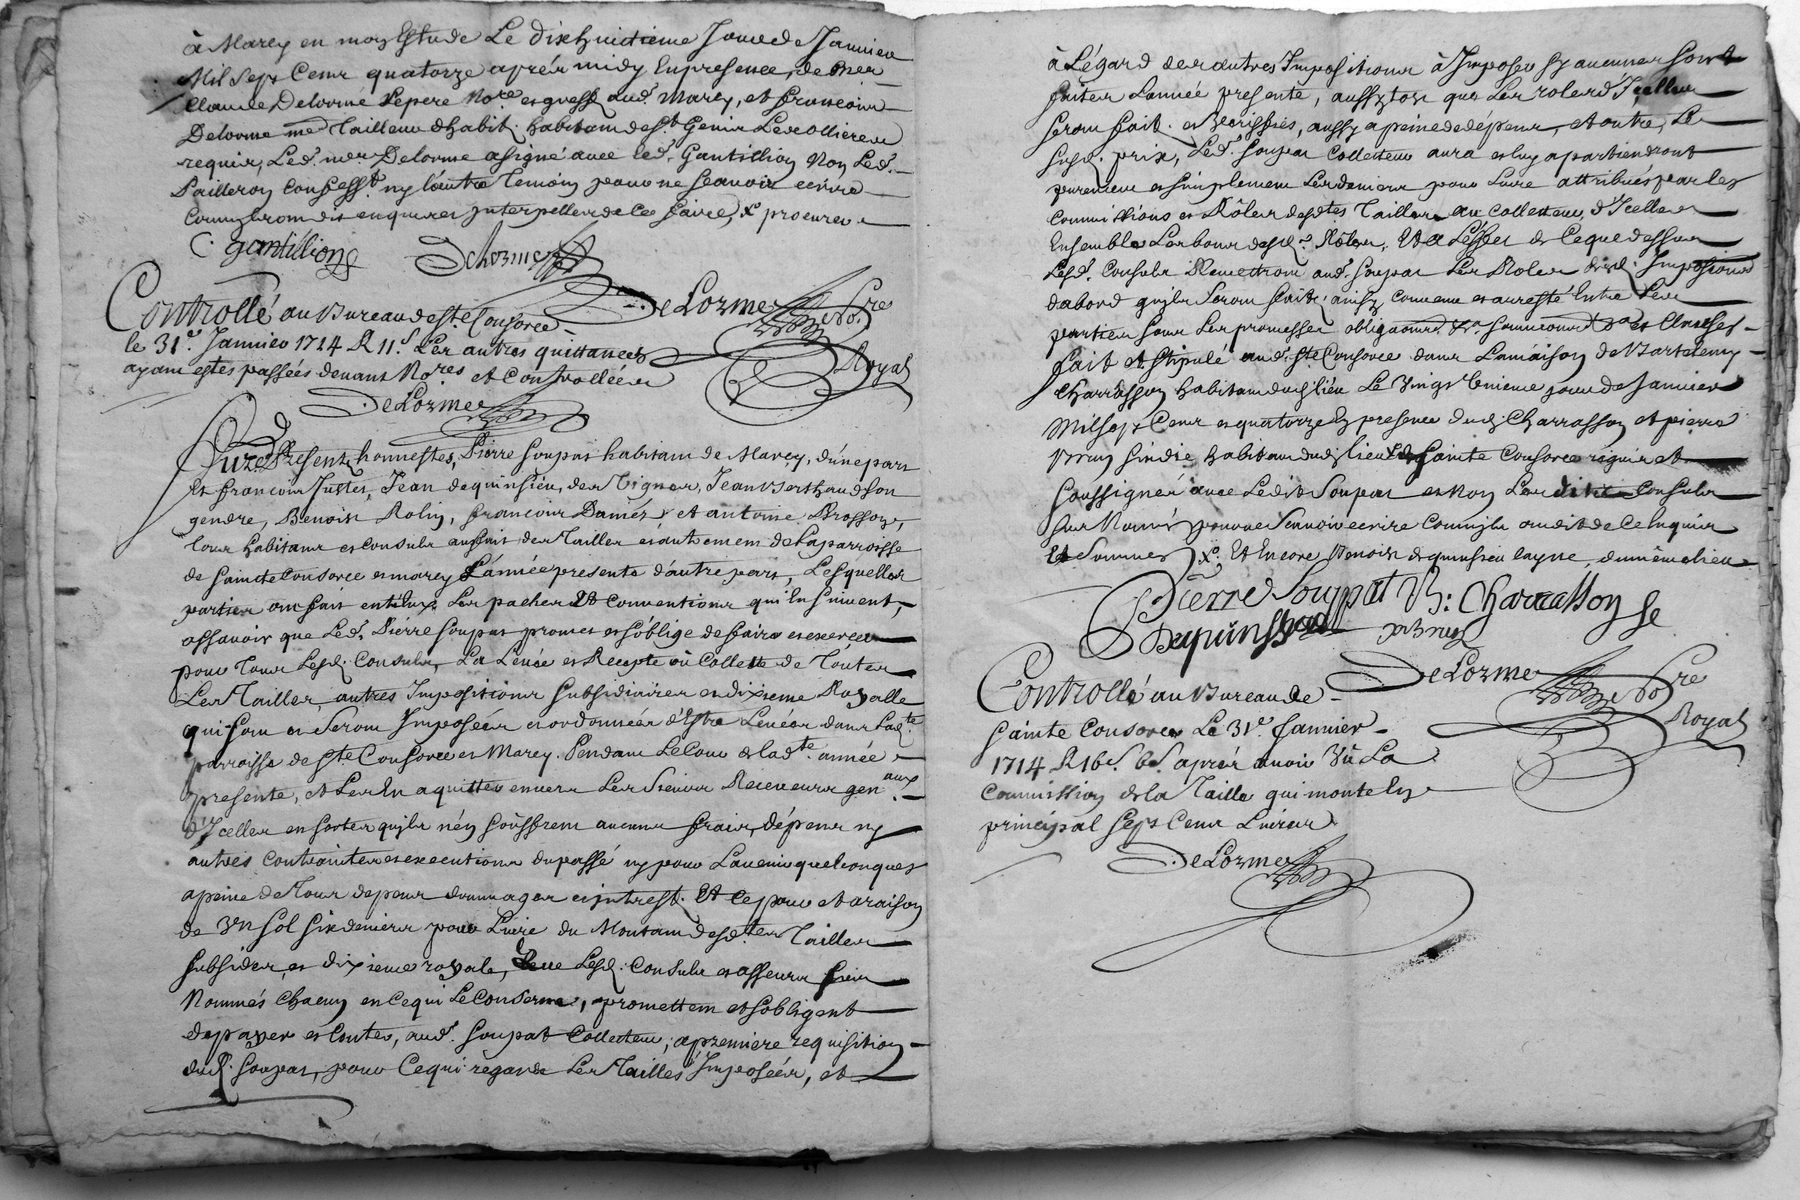 à Marcy en mon Estude Le dixhuictieme Jour de Janvier
Mil sept Cent quatorze aprés midy En presence, de mer
Claude Delorme Le pere No.re et greff. aud. Marcy, et francois
Delorme me Tailleur dhabit. habitant de St. Genis Les ollieres
requis, Led. mer Delorme a signé avec led. Gantillion Non Led.
Pailleron Confesst. ny l'autre Temoin pour ne scavoir ecrire
Comme ont dit enquis et Interpellés de Ce faire, X procureur
C. gantillion DeLorme
Controllé au Bureau de Ste Consorce DeLorme No.re
le 31e. Janvier 1714 R 11s. Les autres quittances Royal
ayant estés passées devant No.res et Controllées
DeLorme
Furent Presents honnestes, Pierre Soupat habitant de Marcy, d'une part
Et francois Juttet, Jean dequinsieu, des Vignes, Jean Berthaud son
gendre, Benoist Rolin, francois Damés et antoine Brosson,
tous habitans et Consuls au fait des Tailles et autrement de La parroisse
de Sainte Consorce et marcy L'année presente d'autre part, Lesquelles
parties ont fait entr'Eux Les paches Et Conventions qui s'en suivent
assavoir que Led. Pierre Soupat promet et s'oblige de faire et exercer
pour Tous Lesd. Consuls, La Levée et Recepte ou Collette de Toutes
Les Tailles, autres Impositions Subsidiaires et dixieme Royalle
qui sont et Seront Imposées et ordonnées d'Estre Levées dans Lad.te
parroisse de Ste Consorce et Marcy. Pendant Le Cour de lad.te année
presente, et Les En aquitter envers Les Sieurs Receveurs gen.aux
d'Icelles en sortes qu'ils n'en souffrent aucuns frais, dépens ny
autres Contraintes et executions du passé ny pour L'avenir quelconques
a peine de Tous depens dommages et intrest. Et Ce pour et a raison
de Un Sol Six deniers pour Livre du Montant desd.tes Tailles
Subsides, et dixieme royale, que Lesd. Consuls et asseurs
Nommés Chacun en Ce qui Le Conserne, promettent et s'obligent
de payer et Conter, aud. Soupat Collecteur, a premiere requisition
dud. Soupat, pour Ce qui regarde Les Tailles Imposées, et
à L'égard des autres Impositions à Imposer Sy aucunes sont
faites L'année presente, aussytost que Les roles d'Icelles
seront fait. et Verissiés, aussy a peine de dépens, et outre, Le
susd. prix, Led. Soupat Collecteur aura et luy apartiendront
purement et simplement Les deniers pour Livre attribués par les
Commissions et Rôles desd.tes Tailles au Collecteur d'Icelles
Ensembles Les bons desd.s Rôles, Et a L'effet de Ce que dessus
Lesd. Consuls Remettront aud. Soupat Les Roles desd. Impositions
dabord qu'ils Seront faits; ainsy Convenu et arresté Entre Les
parties sous Les promesses obligaons &a. Soumissions &a et Clauses
fait et Stipulé aud. Ste Consorce dans La maison de Bartelemy
Charrasson habitant dud. lieu Le Vingt Unieme jour de Janvier
Mil sept Cent et quatorze En presence dud. Charrasson et pierre
Brun Sindic habitant dud. lieu de Sainte Consorce requis et
Soussignés avec Ledit Soupat et Non Les dits Consuls
sus Només pour ne Scavoir ecrire Comme ils ont dit de Ce Enquis
Et Sommés X. Et Encore Benoist dequinsieu layne, du même lieu
Pierre Soupat B: Charrasson
Dequinsieu P Brun
Controllé au Bureau de DeLorme No.re
Sainte Consorce Le 31e. Janvier Royal
1714 R 16s. 6d. aprés avoir Vû La
Commission de la Taille qui monte En
principal Sept Cent Livres
DeLorme